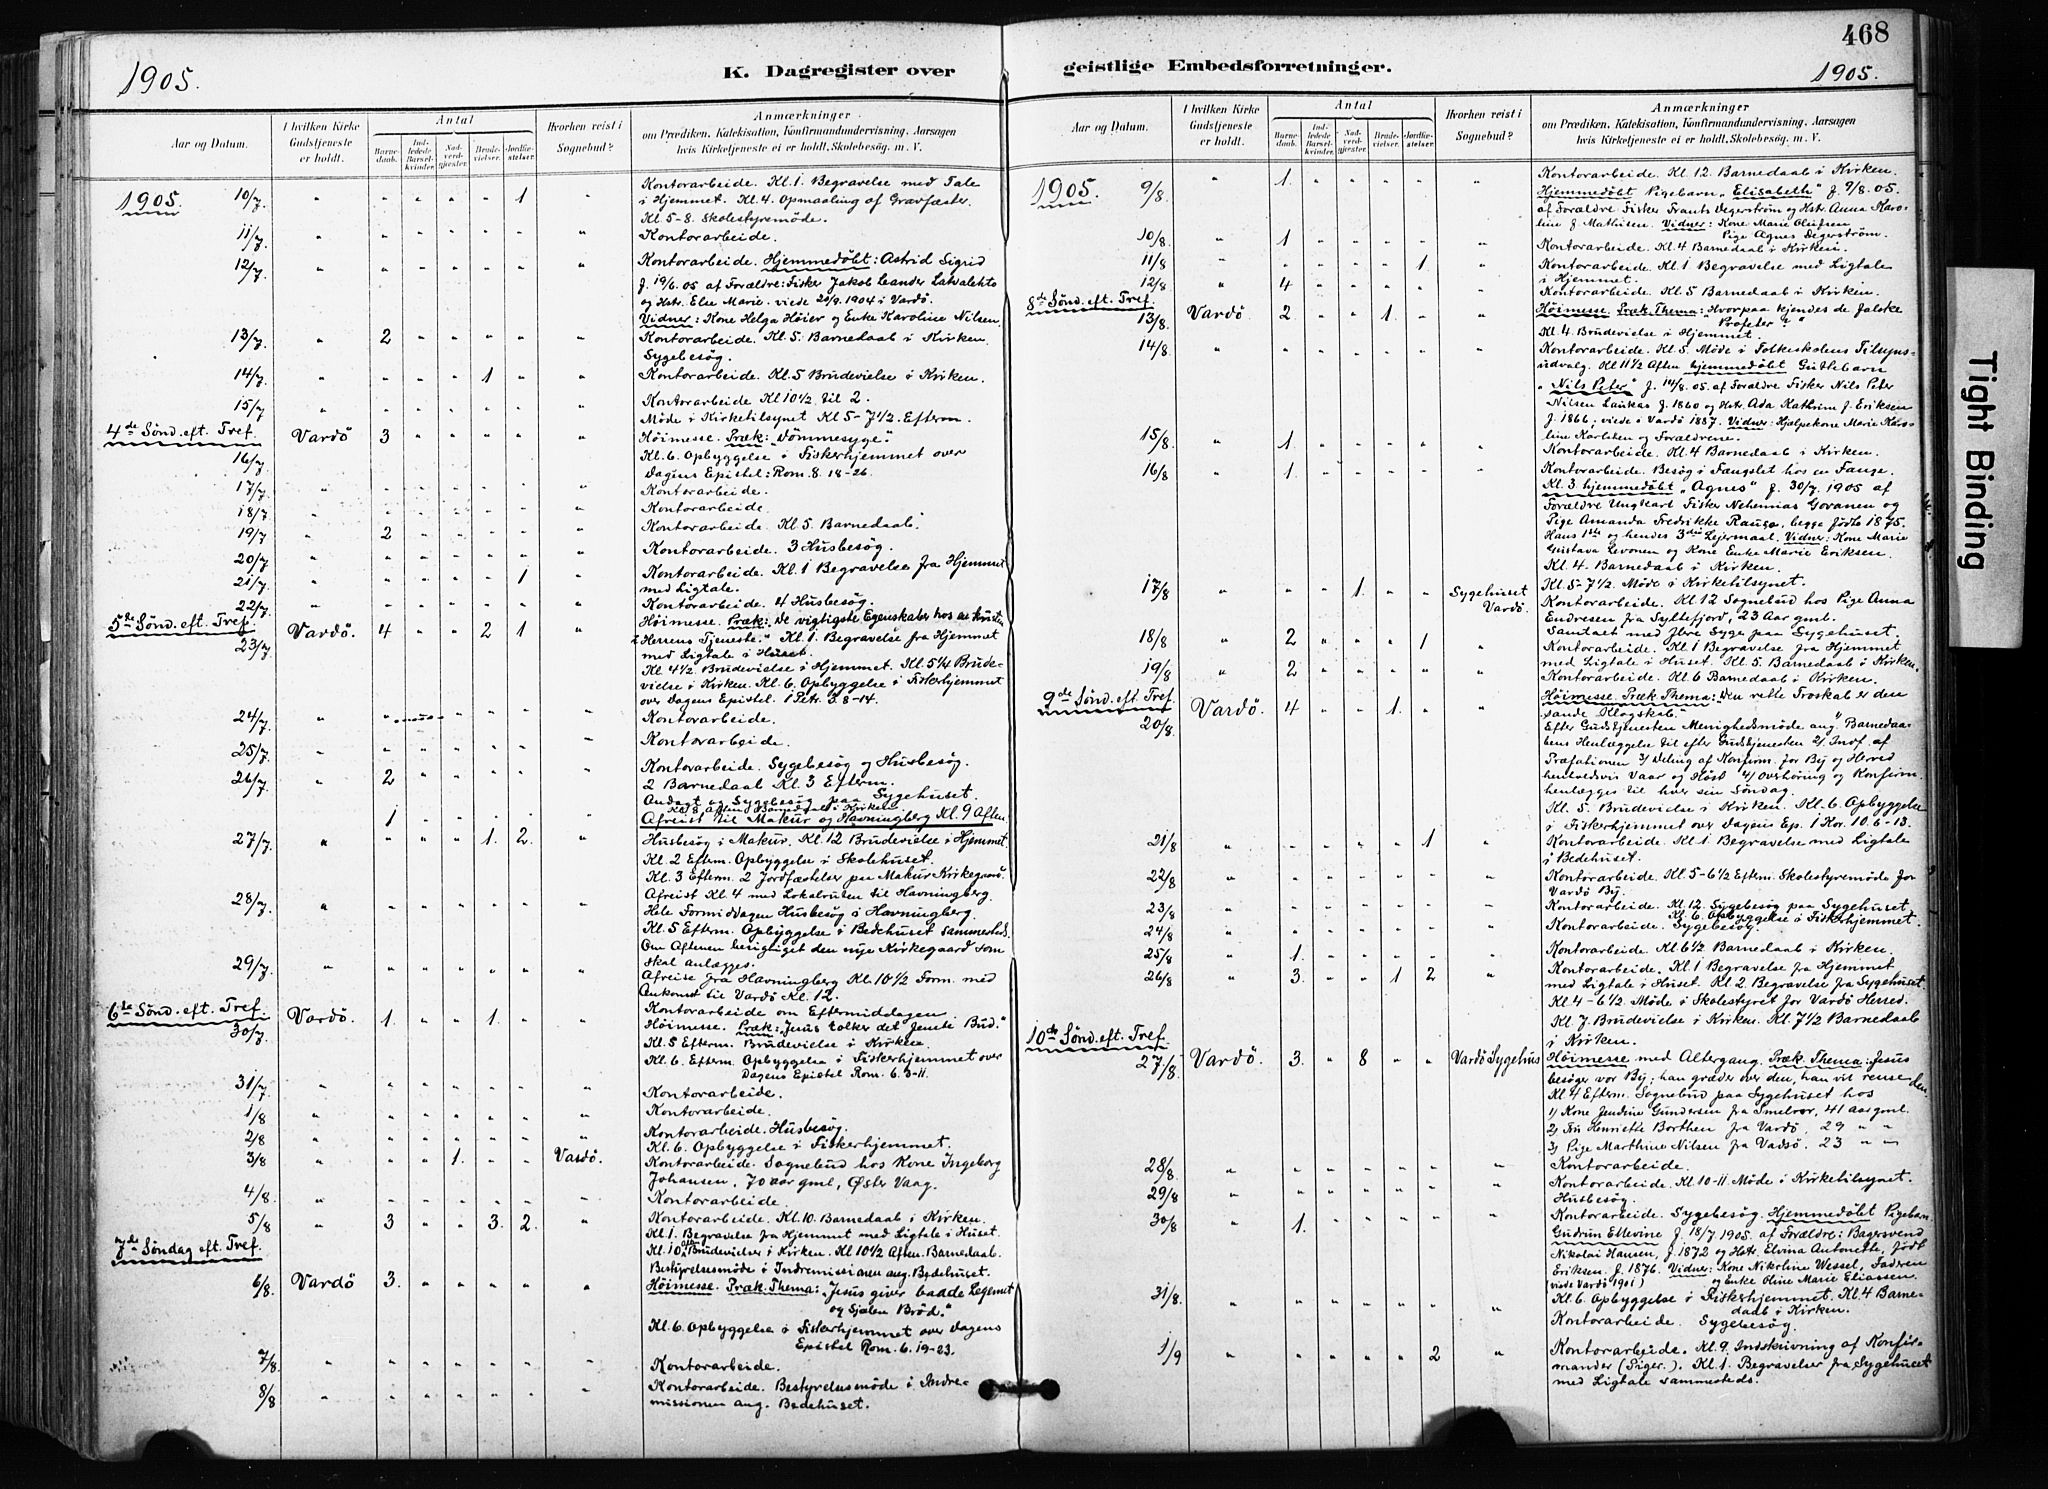 468
1905.
K. Dagregister over
geistlige Embedsforretninger.
1905.
Aar og Datum.
I hvilken Kirke Gudstjeneste er holdt.
Antal
Barnedaab.
Indledede Barselkvinder.
Nadverdgjester.
Brudevielser.
Jordfæstelser.
Hvorhen reist i Sognebud?
Anmærkninger
om Prædiken, Katekisation, Konfirmandundervisning, Aarsagen
hvis Kirketjeneste ei er holdt, Skolebesøg, m. V.
1905. 10/7 " " " " " 1 " Kontorarbeide. Kl. 1. Begravelse med Tale
i Hjemmet. Kl. 4. Opmaaling af Gravfæster.
Kl. 5-8. Skolestyremöde.
11/7 " " " " " " " Kontorarbeide.
12/7 " " " " " " " Kontorarbeide. Hjemmedöbt: Astrid Sigrid
f. 19/6.05 af Forældre: Fisker Jakob Leander Latvalehto
og Hstr. Else Marie. viede 20/9.1904 i Vardö.
Vidner: Kone Helga Höier og Enke Karoline Nilsen.
13/7 " 2 " " " " " Kontorarbeide. Kl. 5. Barnedaab i Kirken.
Sygebesög.
14/7 " " " " 1 " " Kontorarbeide. Kl. 5 Brudevielse i Kirken.
15/7 " " " " " " " Kontorarbeide Kl 10 1/2 til 2.
Möde i Kirketilsynet Kl 5-7 1/2. Efterm.
4de Sönd. eft. Tref. Vardö 3 " " " " " Höimesse. Præk: "Dömmesyge".
16/7 Kl. 6. Opbyggelse i Fiskerhjemmet over
Dagens Epistel: Rom. 8. 18-26.
17/7 " " " " " " " Kontorarbeide.
18/7 " " " " " " " Kontorarbeide.
19/7 " 2 " " " " " Kontorarbeide. Kl 5. Barnedaab.
20/7 " " " " " " " Kontorarbeide. 3 Husbesög.
21/7 " " " " " 1 " Kontorarbeide. Kl. 1 Begravelse fra Hjemmet
med Ligtale.
22/7 " " " " " " " Kontorarbeide. 4 Husbesög.
5te Sönd. eft. Tref. Vardö. 4 " " 2 1 " Höimesse. Præk: "De vigtigste Egenskaber hos
23/7 Herrens Tjeneste." Kl. 1. Begravelse fra Hjemmet
med Ligtale i Huset.
Kl 4 1/2 Brudevielse i Hjemmet. Kl. 5 1/4 Brude-
vielse i Kirken. Kl. 6. Opbyggelse i Fiskerhjemmet
over Dagens Epistel. 1 Petr. 3. 8-14.
24/7 " " " " " " Kontorarbeide.
25/7 " " " " " " " Kontorarbeide.
26/7 " 2 " " " " " Kontorarbeide. Sygebesög og Husbesög.
2 Barnedaab Kl. 3 Efterm.
Andagt og Sygebesög paa Sygehuset.
Kl. 8. Aften Barnedaab i Kirken.
1 " " " " " Afreist til Makur og Havningberg Kl. 9 Aften.
27/7 " " " " 1. 2. " Husbesög i Makur. Kl. 12 Brudevielse i Hjemmet.
Kl. 2 Efterm. Opbyggelse i Skolehuset.
Kl. 3 Efterm. 2 Jordfæstelser paa Makur Kirkegaard.
Afreist Kl. 4 med Lokalruten til Havningberg.
28/7 " " " " " " " Hele Formiddagen Husbesög i Havningberg.
Kl. 5 Efterm. Opbyggelse i Bedehuset sammesteds.
Om Aftenen besigtiget den nye Kirkegaard som
skal anlægges.
29/7 " " " " " " " Afreise fra Havningberg Kl. 10 1/2 Form. med
Ankomst til Vardö Kl. 12.
Kontorarbeide om Eftermiddagen.
6te Sönd. eft. Tref. Vardö. 1. " " 1. " " Höimesse. Præk: "Jesus tolker det femte Bud."
30/7 Kl. 5 Efterm. Brudevielse i Kirken.
Kl. 6. Efterm. Opbyggelse i Fiskerhjemmet over
Dagens Epistel Rom. 6. 3-11.
31/7 " " " " " " " Kontorarbeide.
1/8 " " " " " " " Kontorarbeide.
2/8 " " " " " " " Kontorarbeide. Husbesög.
Kl. 6. Opbyggelse i Fiskerhjemmet.
3/8 " " " 1. " " Vardö. Kontorarbeide. Sognebud hos Kone Ingeborg
Johansen. 70 aar gml, Öster Vaag.
4/8 " " " " " " " Kontorarbeide.
5/8 " 3 " " 3. 2. " Kontorarbeide. Kl. 10. Barnedaab i Kirken.
Kl. 1. Begravelse fra Hjemmet med Ligtale i Huset.
Kl. 10 Brudevielser i Kirken. Kl 10 1/2 Aften. Barnedaab.
Bestyrelsesmöde i Indremissionen ang. Bedehuset.
7de Söndag eft. Tref.
6/8 Vardö 3. " " " " " Höimesse. Præk. Thema: "Jesus giver baade Legemet
og Sjælen Bröd."
Kl. 6. Opbyggelse i Fiskerhjemmet over Dagens
Epistel Rom. 6. 19-23.
7/8. " " " " " " " Kontorarbeide.
8/8 " " " " " " " Kontorarbeide. Bestyrelsesmöde i Indre-
missionen ang. Bedehuset.
Aar og Datum.
I hvilken Kirke Gudstjeneste er holdt.
Antal
Barnedaab.
Indledede Barselkvinder.
Nadverdgjester.
Brudevielser.
Jordfæstelser.
Hvorhen reist i Sognebud?
Anmærkninger
om Prædiken, Katekisation, Konfirmandundervisning, Aarsagen
hvis Kirketjeneste ei er holdt, Skolebesøg, m. V.
1905. 9/8. " 1. " " " " " Kontorarbeide. Kl. 12. Barnedaab i Kirken.
Hjemmedöbt Pigebarn "Elisabeth" f. 9/8.05.
af Forældre Fisker Frants Degerström og Hstr. Anna Karo-
line f. Mathisen. Vidner: Kone Marie Olufsen
Pige Agnes Degerström.
10/8. " 1 " " " " " Kontorarbeide. Kl. 4 Barnedaab i Kirken.
11/8 " " " " " 1. " Kontorarbeide. Kl. 1 Begravelse med Ligtale
i Hjemmet.
12/8 " 4 " " " " " Kontorarbeide. Kl. 5 Barnedaab i Kirken.
8de Sönd. eft. Tref.
13/8. Vardö 2 " " 1. " " Höimesse. Præk. Thema: "Hvorpaa kjendes de falske
Profeter?"
Kl. 4. Brudevielse i Hjemmet.
14/8. " " " " " " " Kontorarbeide. Kl. 5. Möde i Folkeskolens Tilsyns-
udvalg. Kl 11 1/2 Aften hjemmedöbt Guttebarn
"Nils Peter" f. 14/8.05. af Forældre Fisker Nils Peter
Nilsen Laukas f. 1860 og Hstr. Ada Kathrine f. Eriksen
f. 1866, viede i Vardö 1887. Vidner: Hjælpekone Marie Karo-
line Karlsen og Forældrene.
15/8. " 1. " " " " " Kontorarbeide. Kl. 4 Barnedaab i Kirken.
16/8 " 1. " " " " " Kontorarbeide. Besög i Fængslet hos en Fange.
Kl. 3. hjemmedöbt "Agnes" f. 30/7.1905 af
Forældre Ungkarl Fisker Nehemias Govanen og
Pige Amanda Fredrikke Rauso, begge födte 1875.
Hans 1ste og hendes 3die Lejermaal. Vidner: Kone Marie
Gustava Levonen og Kone Enke Marie Eriksen.
Kl. 4. Barnedaab i Kirken.
Kl. 5-7 1/2. Möde i Kirketilsynet.
17/8 " " " 1. " " Sygehuset Vardö. Kontorarbeide. Kl 12 Sognebud hos Pige Anna
Endresen fra Syltefjord, 23 Aar gml.
Samtalt med flere Syge paa Sygehuset.
18/8 " 2 " " " 1 " Kontorarbeide. Kl 1 Begravelse fra Hjemmet
med Ligtale i Huset. Kl. 5. Barnedaab i Kirken.
19/8 " 2 " " " " " Kontorarbeide. Kl 6 Barnedaab i Kirken.
9de Sönd. eft. Tref. Vardö. 4 " " 1. " " Höimesse. Præk. Thema: "Den rette Troskab er den
20/8. sande Klogskab."
Efter Gudstjenesten Menighedsmöde ang. 1) Barnedaa-
bens Henlæggelse til efter Gudstjenesten 2) Indf. af
Præfationen 3) Deling af Konfirm. for By og Herred
henholdsvis Vaar og Höst 4) Overhöring og Konfirm.
henlægges til hver sin Söndag.
Kl. 5. Brudevielse i Kirken. Kl. 6. Opbyggelse
i Fiskerhjemmet over Dagens Ep. 1 Kor. 10. 6-13.
21/8 " " " " " 1 " Kontorarbeide. Kl. 1. Begravelse med Ligtale
i Bedehuset.
22/8 " " " " " " " Kontorarbeide. Kl. 5-6 1/2 Efterm. Skolestyremöde for
Vardö By.
23/8 " " " " " " " Kontorarbeide. Kl. 12. Sygebesög paa Sygehuset
Kl. 6. Opbyggelse i Fiskerhjemmet.
24/8 " " " " " " " Kontorarbeide. Sygebesög.
25/8 " 1. " " " " " Kontorarbeide. Kl 6 1/2 Barnedaab i Kirken.
26/8 " 3. " " 1 2 " Kontorarbeide. Kl. 1 Begravelse fra Hjemmet
med Ligtale i Huset. Kl 2. Begravelse fra Sygehuset.
Kl. 4-6 1/2. Möde i Skolestyret for Vardö Herred.
Kl. 7. Brudevielse i Kirken. Kl. 7 1/2 Barnedaab
i Kirken.
10de Sönd. eft. Tref.
27/8. Vardö. 3. " 8 " " Vardö Sygehus Höimesse med Altergang. Præk. Thema: Jesus
besöger vor By; han græder over den, han vil rense den.
Kl 4 Efterm. Sognebud paa Sygehuset hos
1) Kone Jendine Gundersen fra Smelror, 41 aar gml.
2) Frk Henriette Borthen fra Vardö, 29 " "
3) Pige Marthine Nilsen fra Vadsö. 23 " "
28/8. " " " " " " " Kontorarbeide.
29/8 " " " " " " " Kontorarbeide. Kl 10-11. Möde i Kirketilsynet.
Husbesög.
30/8 " 1. " " " " " Kontorarbeide. Sygebesög. Hjemmedöbt Pigebarn
Gudrun Ellevine f. 18/7 1905. af Forældre: Bagersvend
Nikolai Hansen, f. 1872 og Hstr. Elvina Antonette, födt
Eriksen. f. 1876. Vidner: Kone Nikoline Wessel, Faderen
(viede Vardö 1901) og Enke Oline Marie Eliassen.
Kl. 6. Opbyggelse i Fiskerhjemmet. Kl. 4 Barne-
daab i Kirken.
31/8. " " " " " " " Kontorarbeide. Sygebesög.
1/9 " " " " " 2 " Kontorarbeide. Kl. 9. Indskrivning af Konfir-
mander (Piger). Kl. 1. Begravelser fra Sygehuset
med Ligtale sammesteds.
Tight Binding